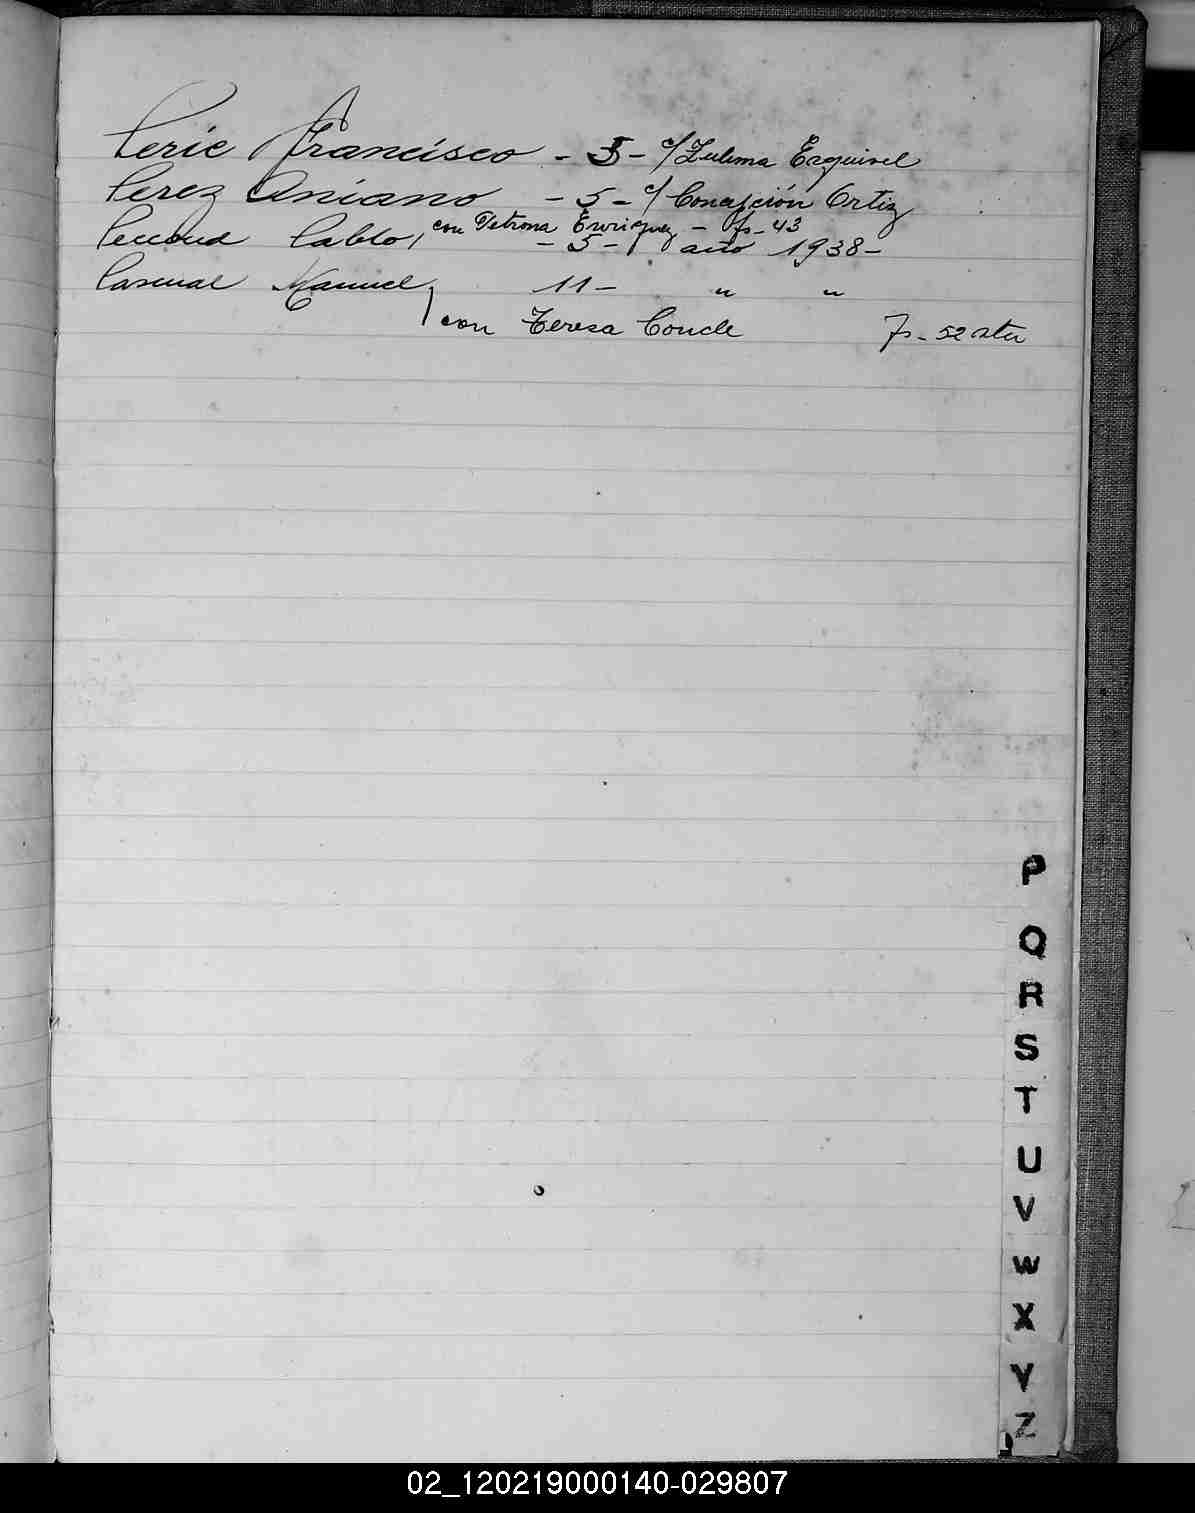 Peric Francisco - 5 - c/ Zulema Esquivel
Perez Aniano - 5 - c/ Concepción Ortiz
Pablo, con Petrona Enriquez - fs - 43
- 5 - año 1938 -
Pascual Manuel, 11 - " "
con Teresa Conde fs - 52 
P
Q
R
S
T
U
V
W
X
Y
Z
02_120219000140-029807